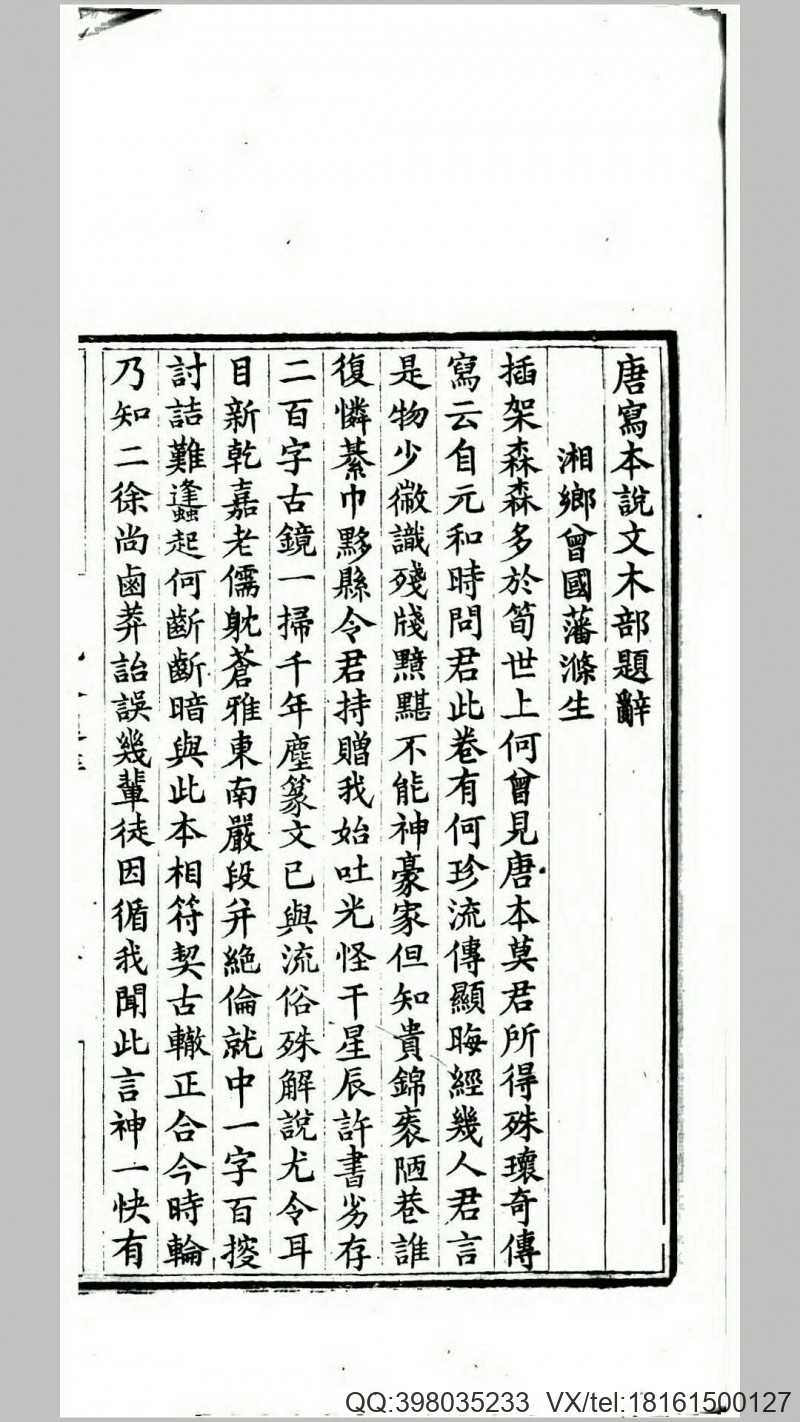 唐寫本說文木部題辭
湘鄉曾國藩滌生
插架森森多於筍世上何曾見唐本莫君所得殊瓌奇傳
寫云自元和時問君此卷有何珍流傳顯晦經幾人君言
是物少微識殘牋黯黮不能神豪家但知貴錦袠陋巷誰
復憐綦巾黟縣令君持贈我始吐光怪干星辰許書劣存
二百字古鏡一掃千年塵篆文已與流俗殊解說尤令耳
目新乾嘉老儒躭蒼雅東南嚴段并絕倫就中一字百搜
討詰難蠭起何齗齗暗與此本相符契古轍正合今時輪
乃知二徐尚鹵莽詒誤幾輩徒因循我聞此言神一快有
QQ:398035233 VX/tel:18161500127